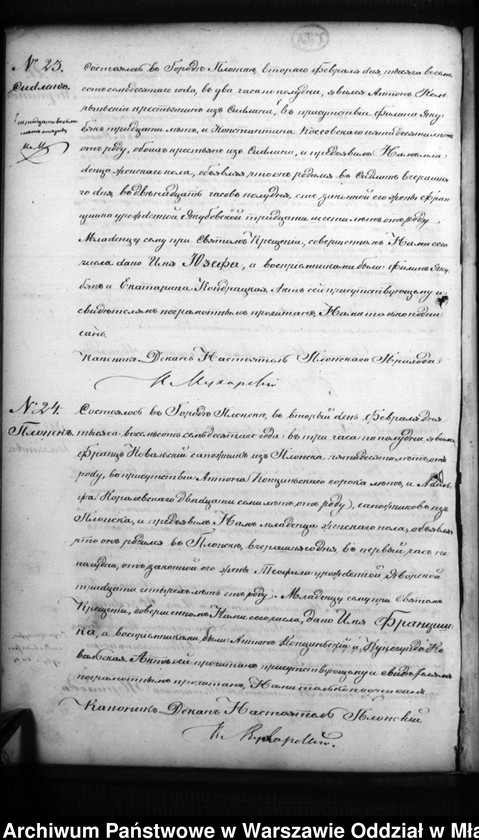 № 23.
Состоялось въ Городѣ Плонскѣ, втораго Февраля дня, тысяча восемь
сотъ семьдесятаго года, въ два часа по полудни, явился Антонъ
крестьянинъ изъ въ присутствіи Филипа Яку-
бякъ тридцати лѣтъ, и Константина пятидесяти лѣтъ
отъ роду, обоихъ крестьянъ изъ и предъявилъ Намъ мла-
денца женскаго пола, объявляя что онъ родился въ вчерашня-
го дня, въ двѣнадцать часовъ полудня, отъ законной его жены Фран-
цишки урожденной Якубовской тридцати шести лѣтъ отъ роду.
Младенцу сему при Святомъ Крещеніи, совершенномъ Нами сего
числа дано Имя Юзефа, а воспріемниками были Филипъ Яку-
бякъ и Екатарина Кондрацкая. Актъ сей присутствующему и
свидѣтелямъ неграмотнымъ прочитанъ, Нами только подпи-
санъ.
Каноникъ Деканъ Настоятель Плонскаго Прихода
К. Мухарскій
№ 24.
Плонскъ.
Состоялось въ Городѣ Плонскѣ, въ вторый день Февраля дня
тысяча восемьсотъ семьдесятаго года въ три часа по полудни, явился
Францъ Ковальскій сапожникъ изъ Плонска пятидесяти лѣтъ отъ
роду, въ присутствіи Антона сорока лѣтъ, и
Королевскаго двадцати семи лѣтъ отъ роду, сапожниковъ изъ
Плонска, и предъявилъ Намъ младенца женскаго пола, объявляя
что онъ родился въ Плонскѣ, вчерашняго дня, въ первый часъ по
полудни, отъ законной его жены Теофили урожденной Яворской
тридцати четырехъ лѣтъ отъ роду. Младенцу сему при Святомъ
Крещеніи, совершенномъ Нами сего числа, дано Имя Францишка,
а воспріемниками были Антонъ и Кунегунда Ко-
вальская. Актъ сей прочитанъ присутствующему и свидѣтелямъ
неграмотнымъ прочитанъ, Нами только подписанъ.
Каноникъ Деканъ Настоятель Плонскій
К. Мухарскій.
Archiwum Państwowe w Warszawie Oddział w Mła